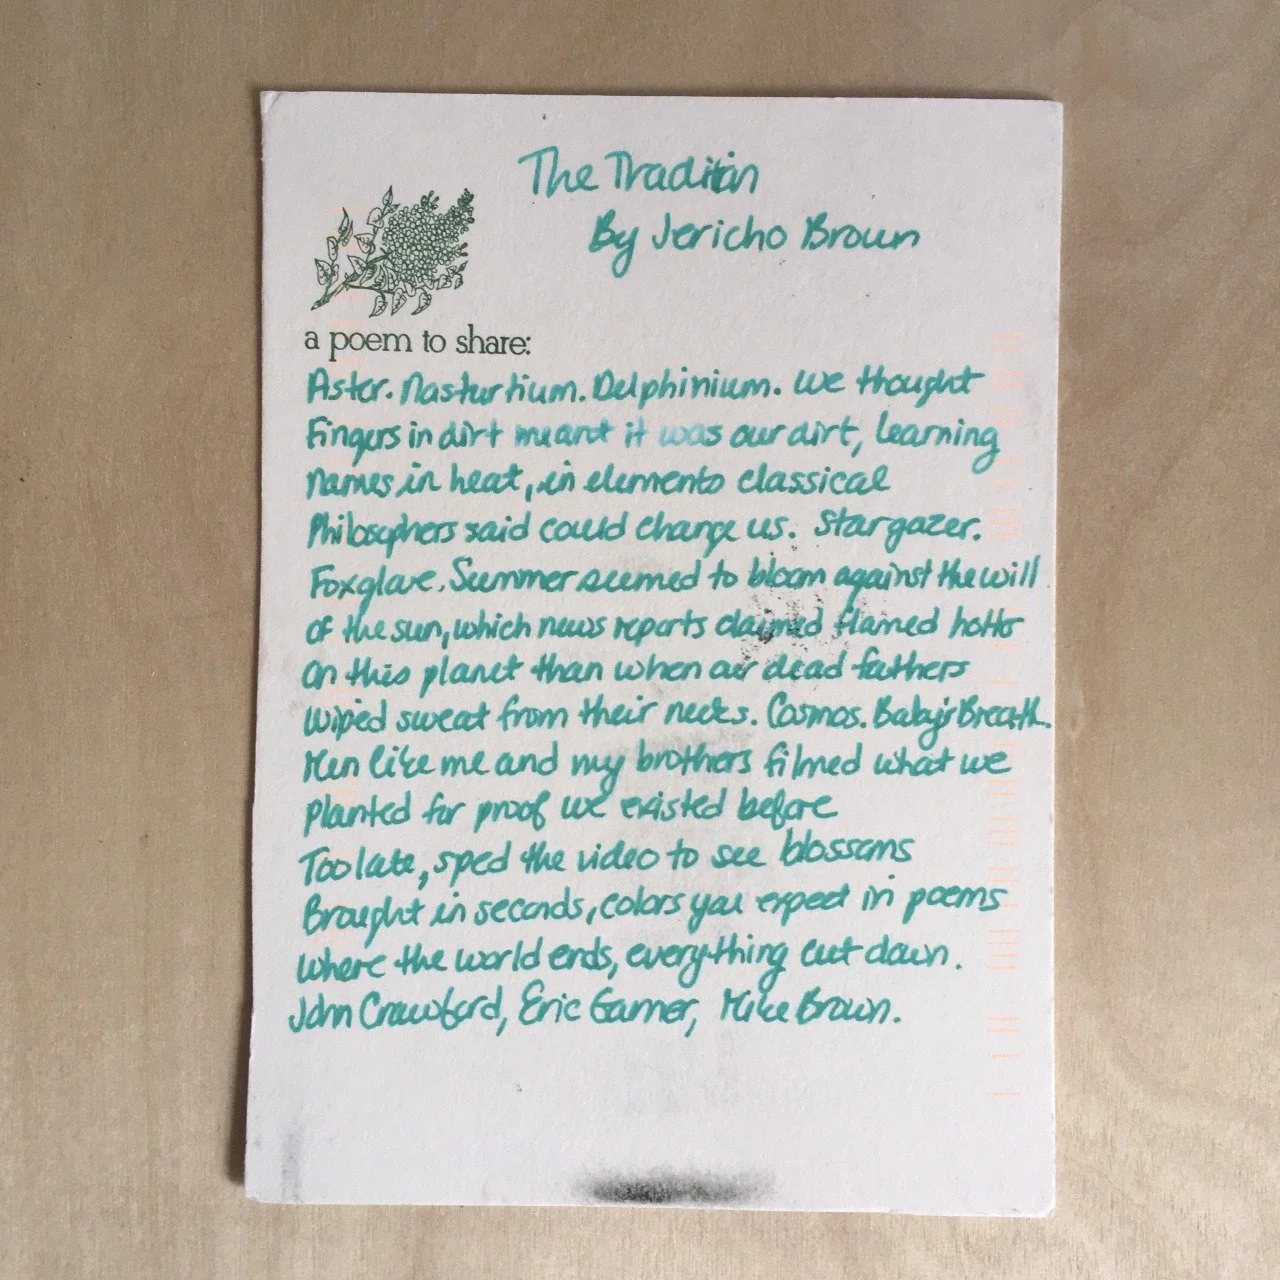 The Tradition
By Jericho Brown
a poem to share:
Aster. Nasturtium. Delphinium. We thought
Fingers in dirt meant it was our dirt, learning
Names in heat, in elements classical
Philosophers said could change us. Stargazer.
Foxglove. Summer seemed to bloom against the will
of the sun, which news reports claimed flamed hotter
on this planet than when our dead fathers
wiped sweat from their necks. Cosmos. Baby's Breath.
Men like me and my brothers filmed what we
planted for proof we existed before
Too late, sped the video to see blossoms
Brought in seconds, colors you expect in poems
where the world ends, everything cut down.
John Crawford, Eric Garner, Mike Brown.